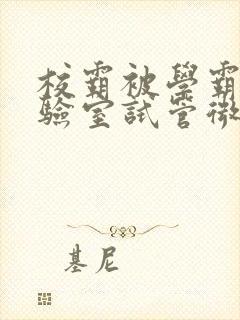 校霸被學霸
驗室試管微
基尼